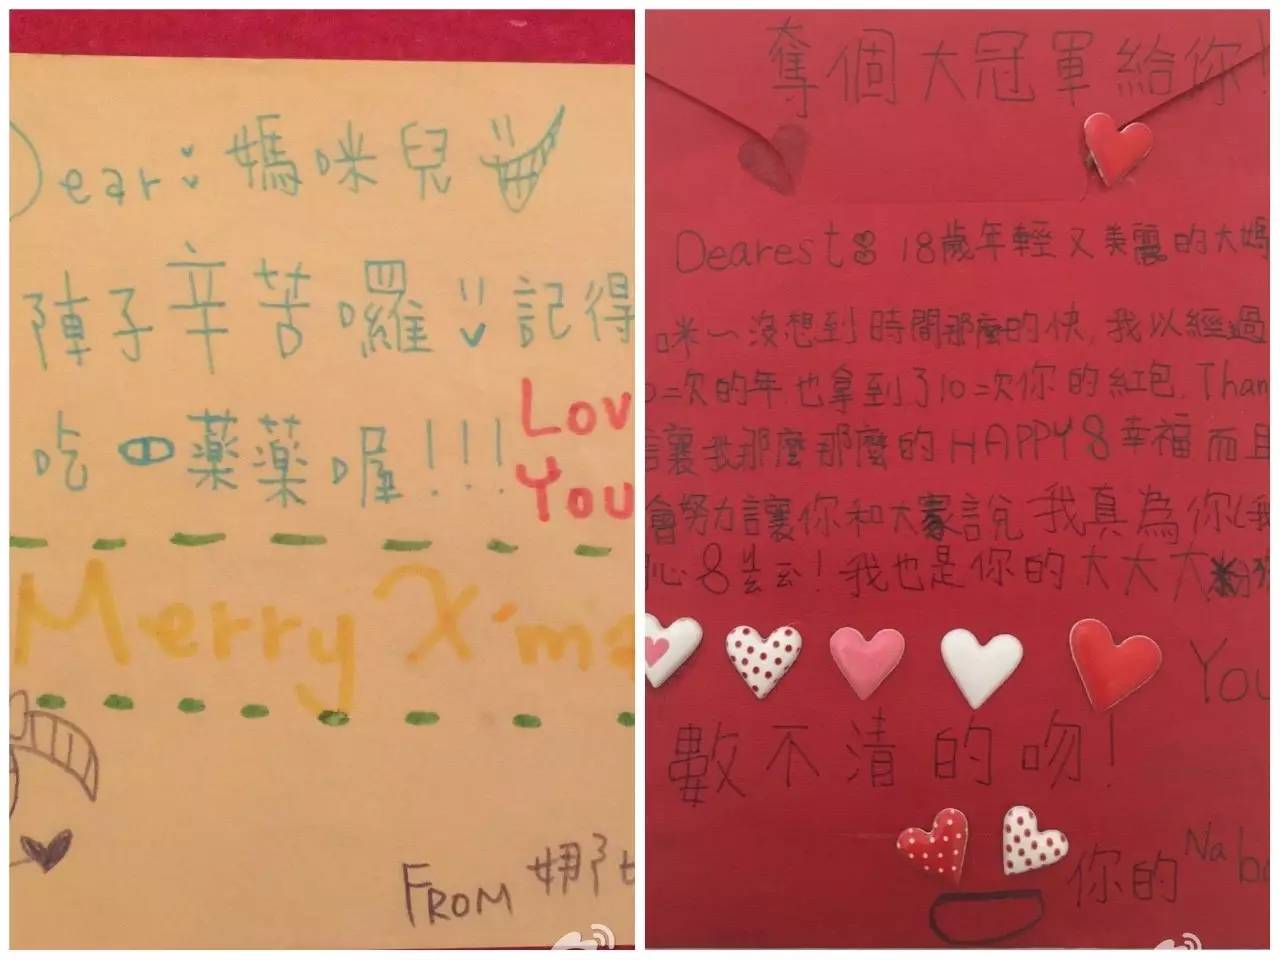 Dear: 媽咪兒
陣子辛苦囉 記得
吃藥藥喔!!!
Lov
You
Merry X'mas
FROM 娜娜
奪個大冠軍給你!
Dearest: 18歲年輕又美麗的大媽
咪~沒想到時間那麼的快,我以經過
0=次的年也拿到了10=次你的紅包.Than
讓我那麼那麼的HAPPY8幸福而且
會努力讓你和大家說我真為你(我
心8 ! 我也是你的大大大粉
You
數不清的吻!
你的Na b